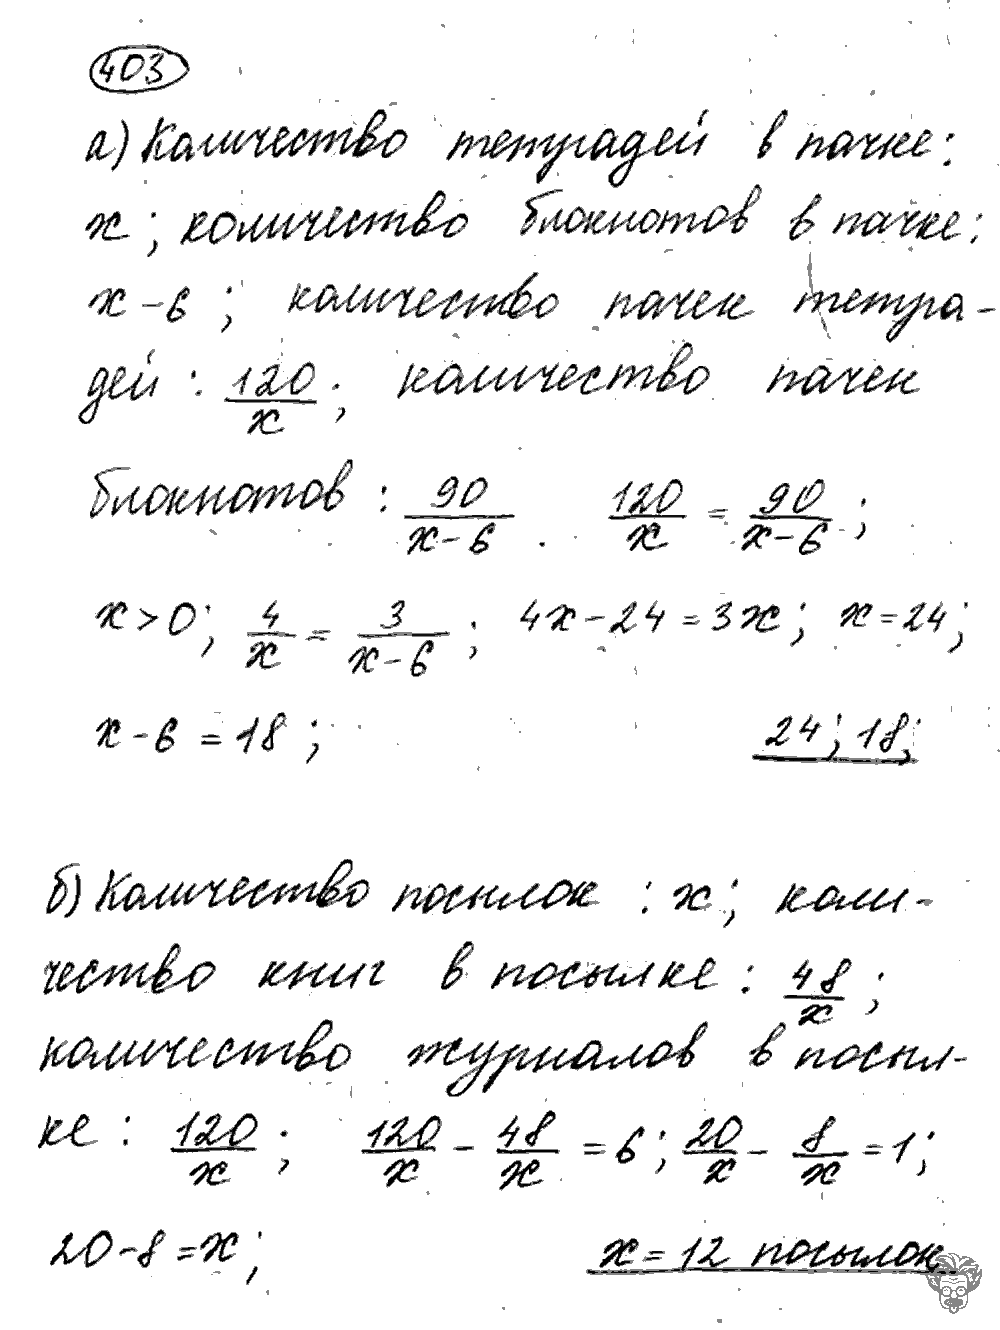 403
а) Количество тетрадей в пачке:
x; количество блокнотов в пачке:
x-6; количество пачек тетра-
дей: 120/x; количество пачек
блокнотов: 90/(x-6). 120/x = 90/(x-6);
x>0; 4/x = 3/(x-6); 4x-24=3x; x=24;
x-6=18; 24; 18;
б) Количество посылок: x; коли-
чество книг в посылке: 48/x;
количество журналов в посыл-
ке: 120/x; 120/x - 48/x = 6; 20/x - 8/x = 1;
20-8=x; x=12 посылок